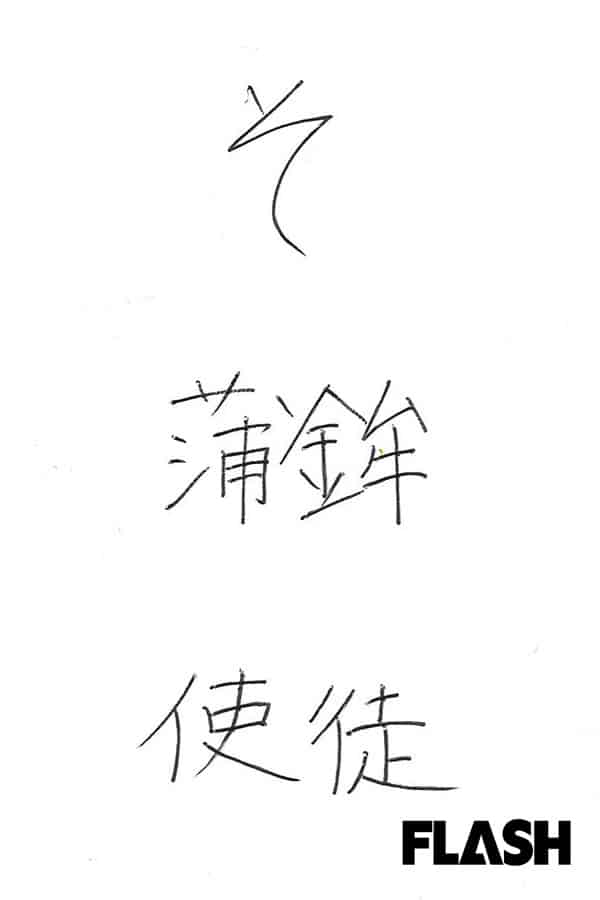 そ
蒲鉾
使徒
FLASH